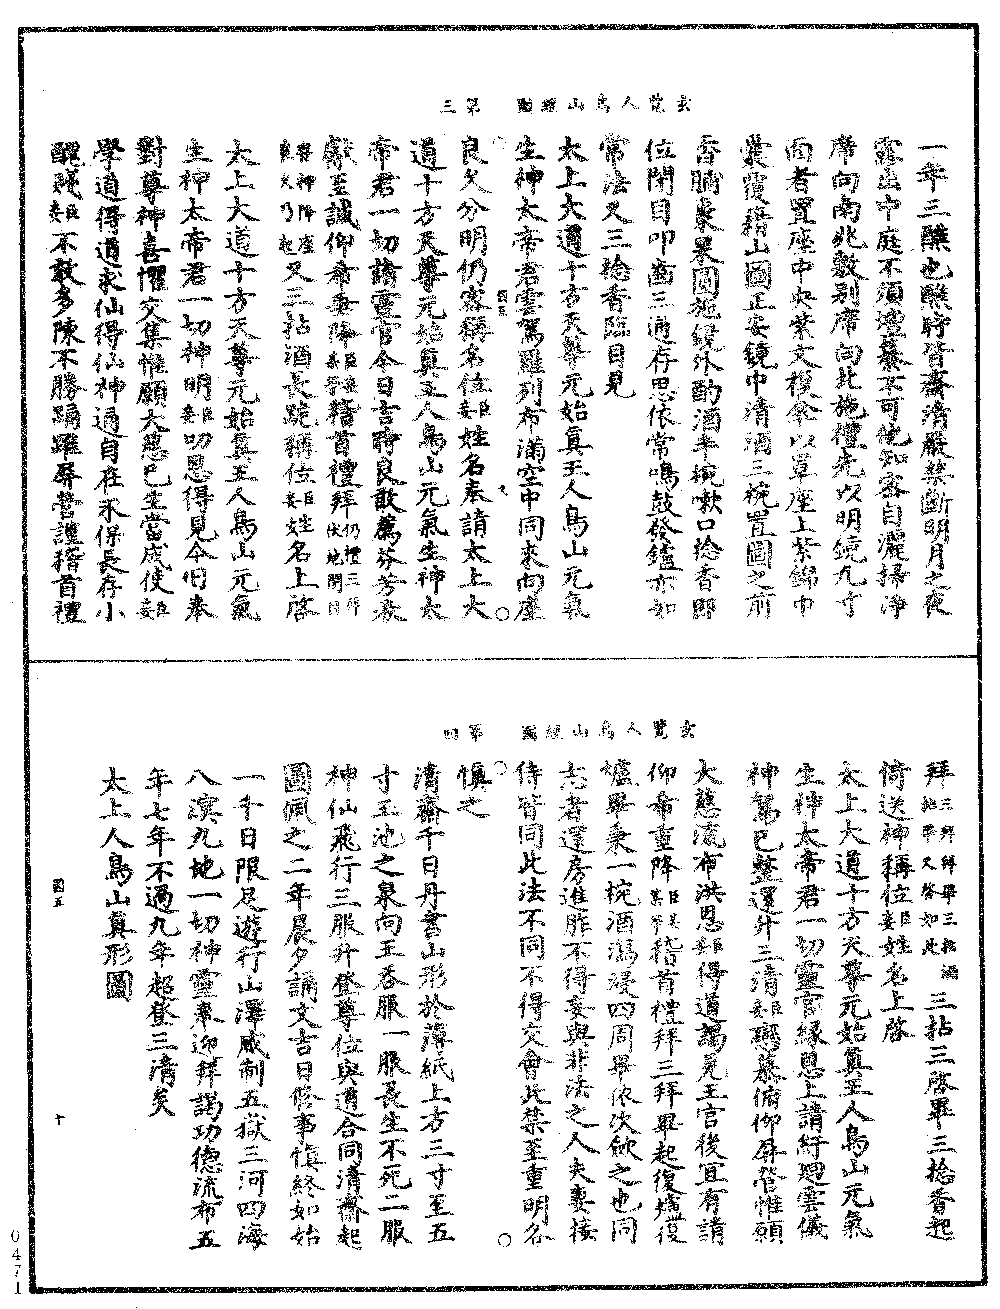 玄覽人鳥山經圖　第三
一年三醮也醮時皆齋清嚴禁斷明月之夜
露出中庭不須壇纂不可他知客自灑掃淨
席向南北敷別席向北施禮先以明鏡九寸
面者置座中央紫文複傘以單座上紫錦巾
囊覆藉山圖正安鏡中清酒三椀置圖之前
香脯棗果圓施鏡外酌酒半椀嗽口捻香即
位閉目叩齒三通存思依常鳴鼓發鑪亦如
常法又三捻香臨目見
太上大道十方天尊元始真王人鳥山元氣
生神太帝君雲駕羅列布滿空中同來向座
良久分明仍密稱名位臣妾姓名奉請太上大
道十方天尊元始真王人鳥山元氣生神太
帝君一切諸靈官今日吉時良敢薦芬芳恭
獻至誠仰希垂降臣某妾等稽首禮拜仍禮三拜伏地閉目
存神降座良久乃起又三拈酒長跪稱位臣妾姓名上啓
太上大道十方天尊元始真王人鳥山元氣
生神太帝君一切神明臣妾叨恩得見今日奉
對尊神喜懼交集惟願大慈已生當成使臣妾
學道得道求仙得仙神通自在永保長存小
醮賤臣妾不敢多陳不勝踊躍屏營謹稽首禮
圖五　九
玄覽人鳥山經圖　第四
拜三拜拜畢三拈酒拈畢又啓如此三拈三啓畢三捻香起
倚送神稱位臣妾姓名上啓
太上大道十方天尊元始真王人鳥山元氣
生神太帝君一切靈官緣恩上請紆迴雲儀
神駕已整還升三清臣妾戀慕俯仰屏營惟願
大慈流布洪恩臣妾得道謁見王官後宜有請
仰希重降臣某妾等稽首禮拜三拜畢起復爐復
爐畢秉一椀酒瀉浸四周畢依次飲之也同
志者還房進胙不得妄與非法之人夫妻接
侍皆同此法不同不得交會此禁至重明各
慎之
清齋千日丹書山形於薄紙上方三寸至五
寸玉池之泉向王吞服一服長生不死二服
神仙飛行三服升登尊位與道合同清齋起
圖佩之二年晨夕誦文吉日修事慎終如始
一千日限足遊行山澤威制五嶽三河四海
八溟九地一切神靈奉迎拜謁功德流布五
年七年不過九年超登三清矣
太上人鳥山真形圖
圖五　十
0471